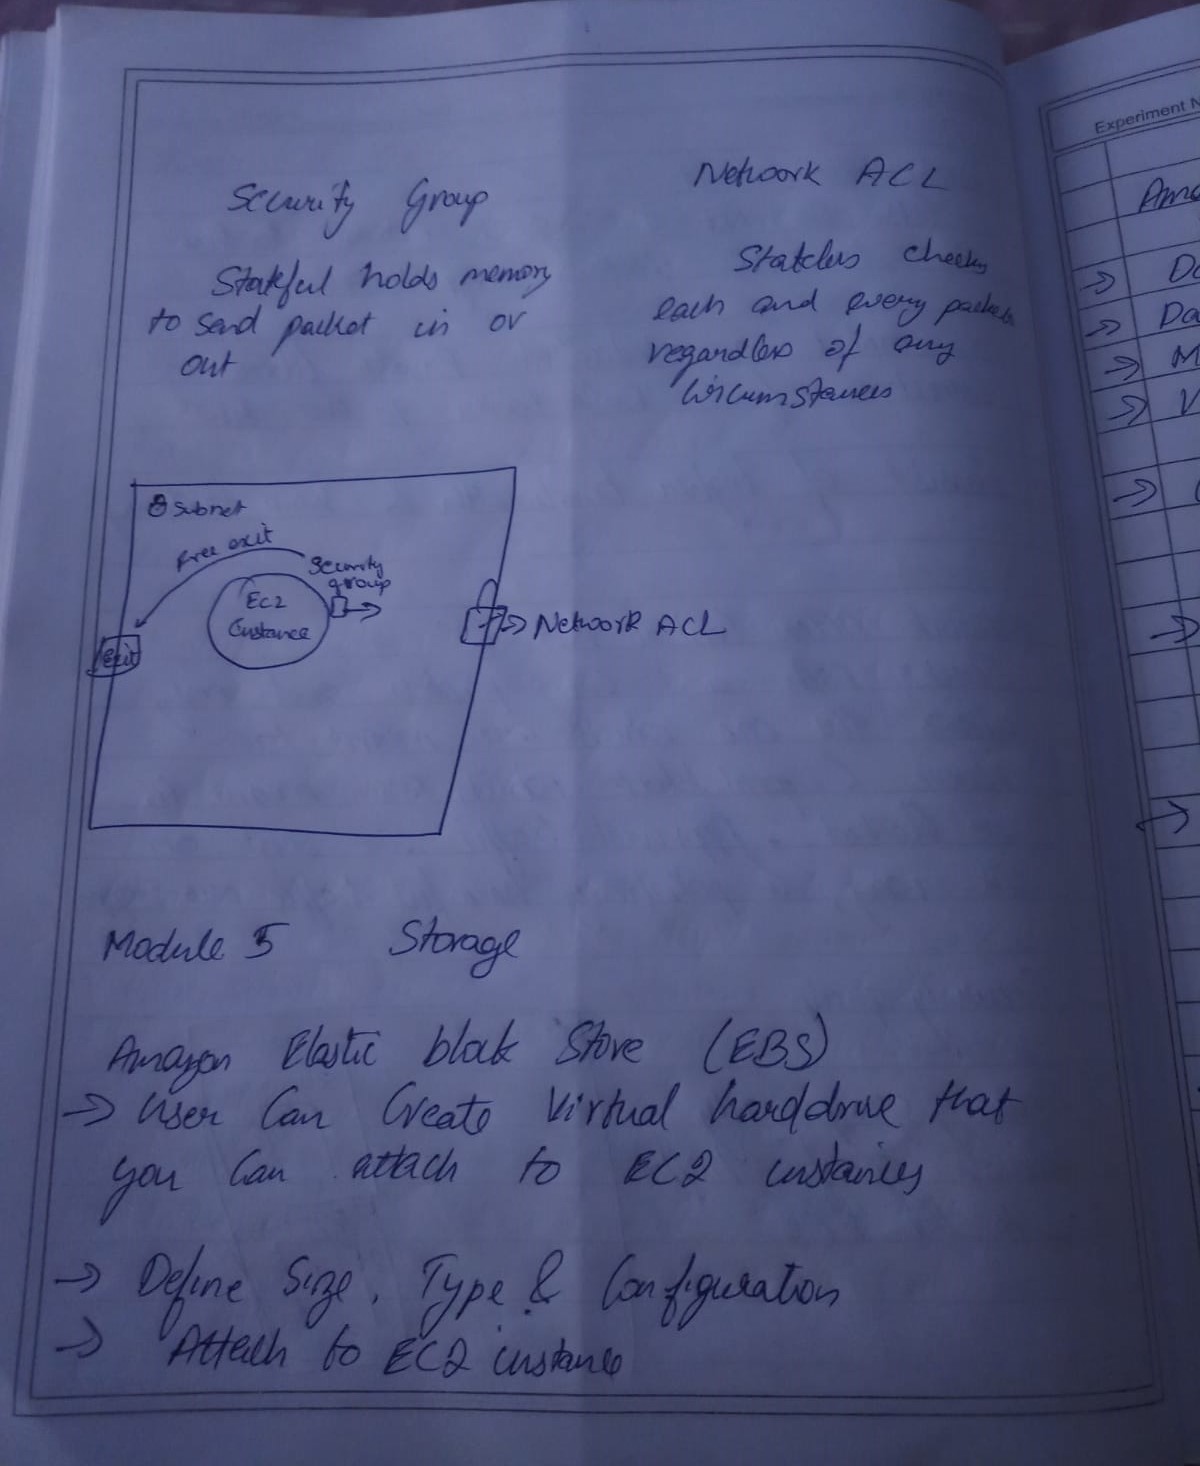 Security Group
Stateful holds memory
to send packet in or
out
Network ACL
Stateless checks
each and every packets
regardless of any
circumstances
Subnet
Free exit
Security
group
EC2
instance
exit
Network ACL
Module 5 Storage
Amazon Elastic block Store (EBS)
→ User Can Create Virtual harddrive that
you Can attach to EC2 instances
→ Define Size, Type & Configuration
→ Attach to EC2 instance
Experiment N